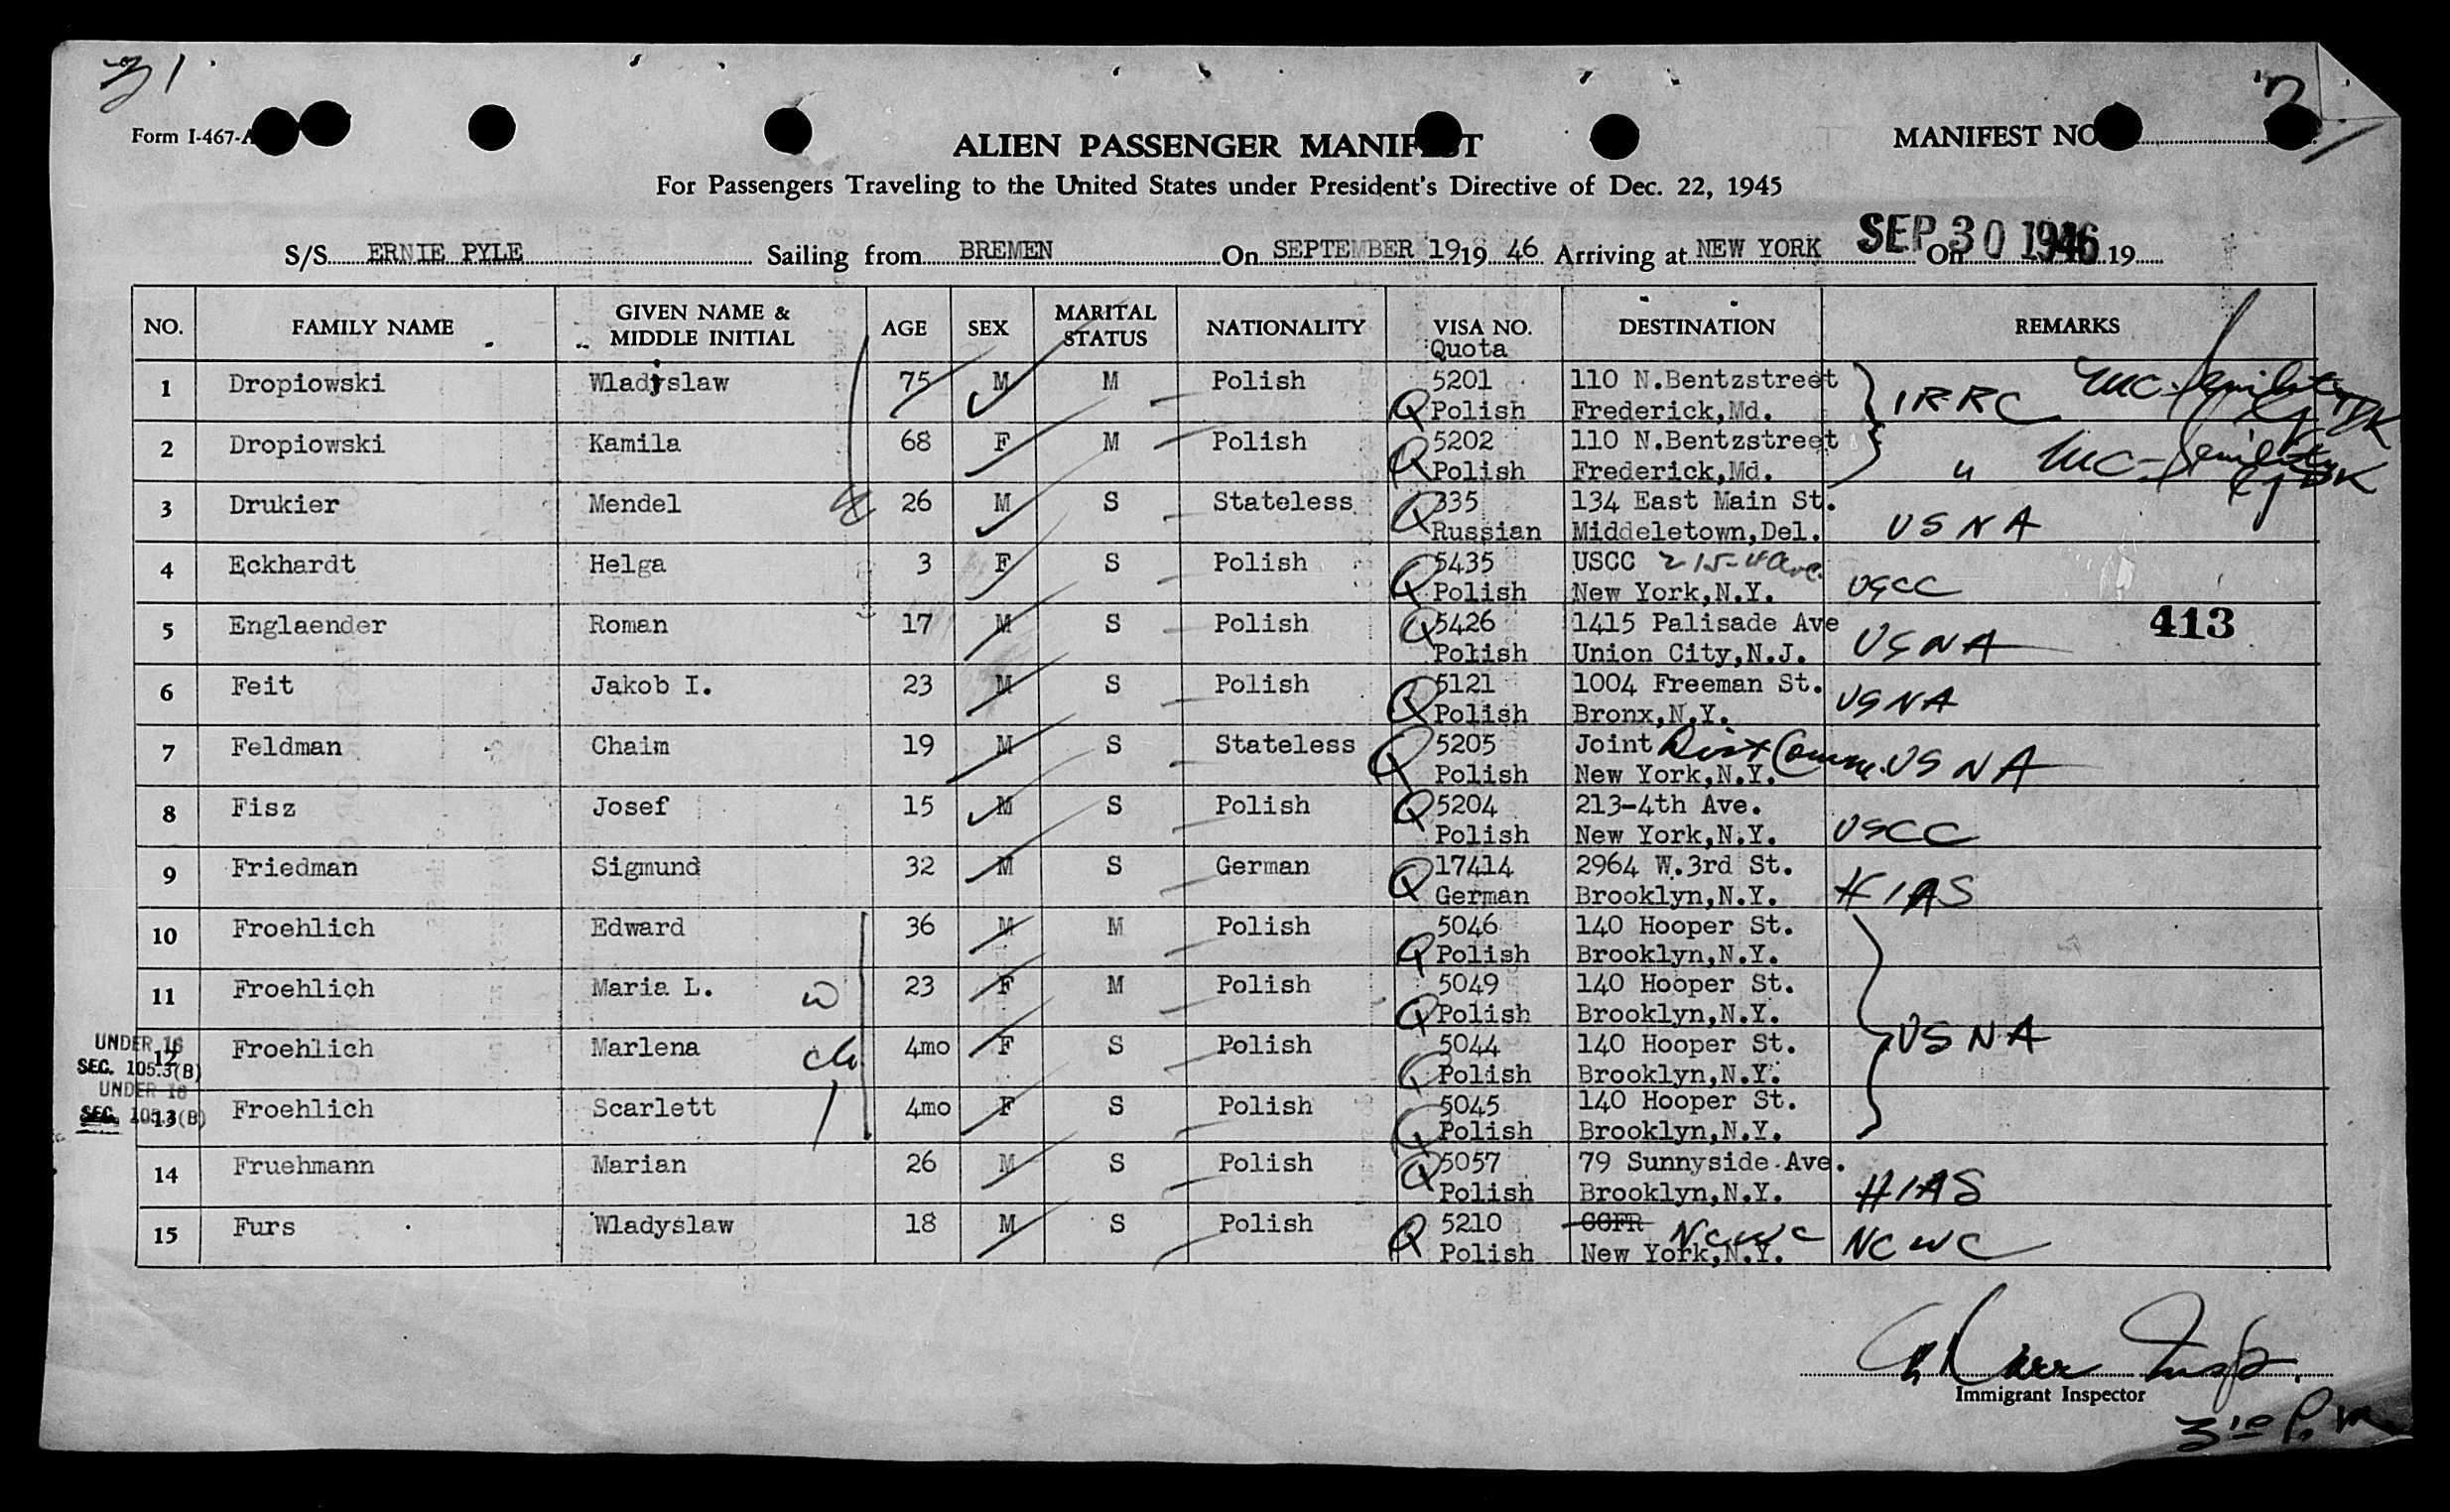 31
Form I-467-A
ALIEN PASSENGER MANIFEST
MANIFEST NO.
For Passengers Traveling to the United States under President's Directive of Dec. 22, 1945
S/S ERNIE PYLE Sailing from BREMEN On SEPTEMBER 19 19 46 Arriving at NEW YORK On SEP 30 1946 19
NO. FAMILY NAME GIVEN NAME & MIDDLE INITIAL AGE SEX MARITAL STATUS NATIONALITY VISA NO. Quota DESTINATION REMARKS
1 Dropiowski Wladyslaw 75 M M Polish Q 5201 110 N.Bentzstreet IRRC
Polish Frederick,Md.
2 Dropiowski Kamila 68 F M Polish Q 5202 110 N.Bentzstreet "
Polish Frederick,Md.
3 Drukier Mendel 26 M S Stateless Q 335 134 East Main St. USNA
Russian Middeletown,Del.
4 Eckhardt Helga 3 F S Polish Q 5435 USCC 215-4 Ave. USCC
Polish New York,N.Y.
5 Englaender Roman 17 M S Polish Q 5426 1415 Palisade Ave USNA 413
Polish Union City,N.J.
6 Feit Jakob I. 23 M S Polish Q 5121 1004 Freeman St. USNA
Polish Bronx,N.Y.
7 Feldman Chaim 19 M S Stateless Q 5205 Joint Dist Comm. USNA
Polish New York,N.Y.
8 Fisz Josef 15 M S Polish Q 5204 213-4th Ave. USCC
Polish New York,N.Y.
9 Friedman Sigmund 32 M S German Q 17414 2964 W.3rd St. HIAS
German Brooklyn,N.Y.
10 Froehlich Edward 36 M M Polish Q 5046 140 Hooper St.
Polish Brooklyn,N.Y.
11 Froehlich Maria L. w 23 F M Polish Q 5049 140 Hooper St.
Polish Brooklyn,N.Y.
UNDER 16
12 Froehlich Marlena ch 4mo F S Polish Q 5044 140 Hooper St. USNA
SEC. 105.3(B) Polish Brooklyn,N.Y.
UNDER 16
13 Froehlich Scarlett 4mo F S Polish Q 5045 140 Hooper St.
SEC. 105.3(B) Polish Brooklyn,N.Y.
14 Fruehmann Marian 26 M S Polish Q 5057 79 Sunnyside Ave. HIAS
Polish Brooklyn,N.Y.
15 Furs Wladyslaw 18 M S Polish Q 5210 CGFR NCWC NCWC
Polish New York,N.Y.
Insp.
Immigrant Inspector
3 10 P.M.